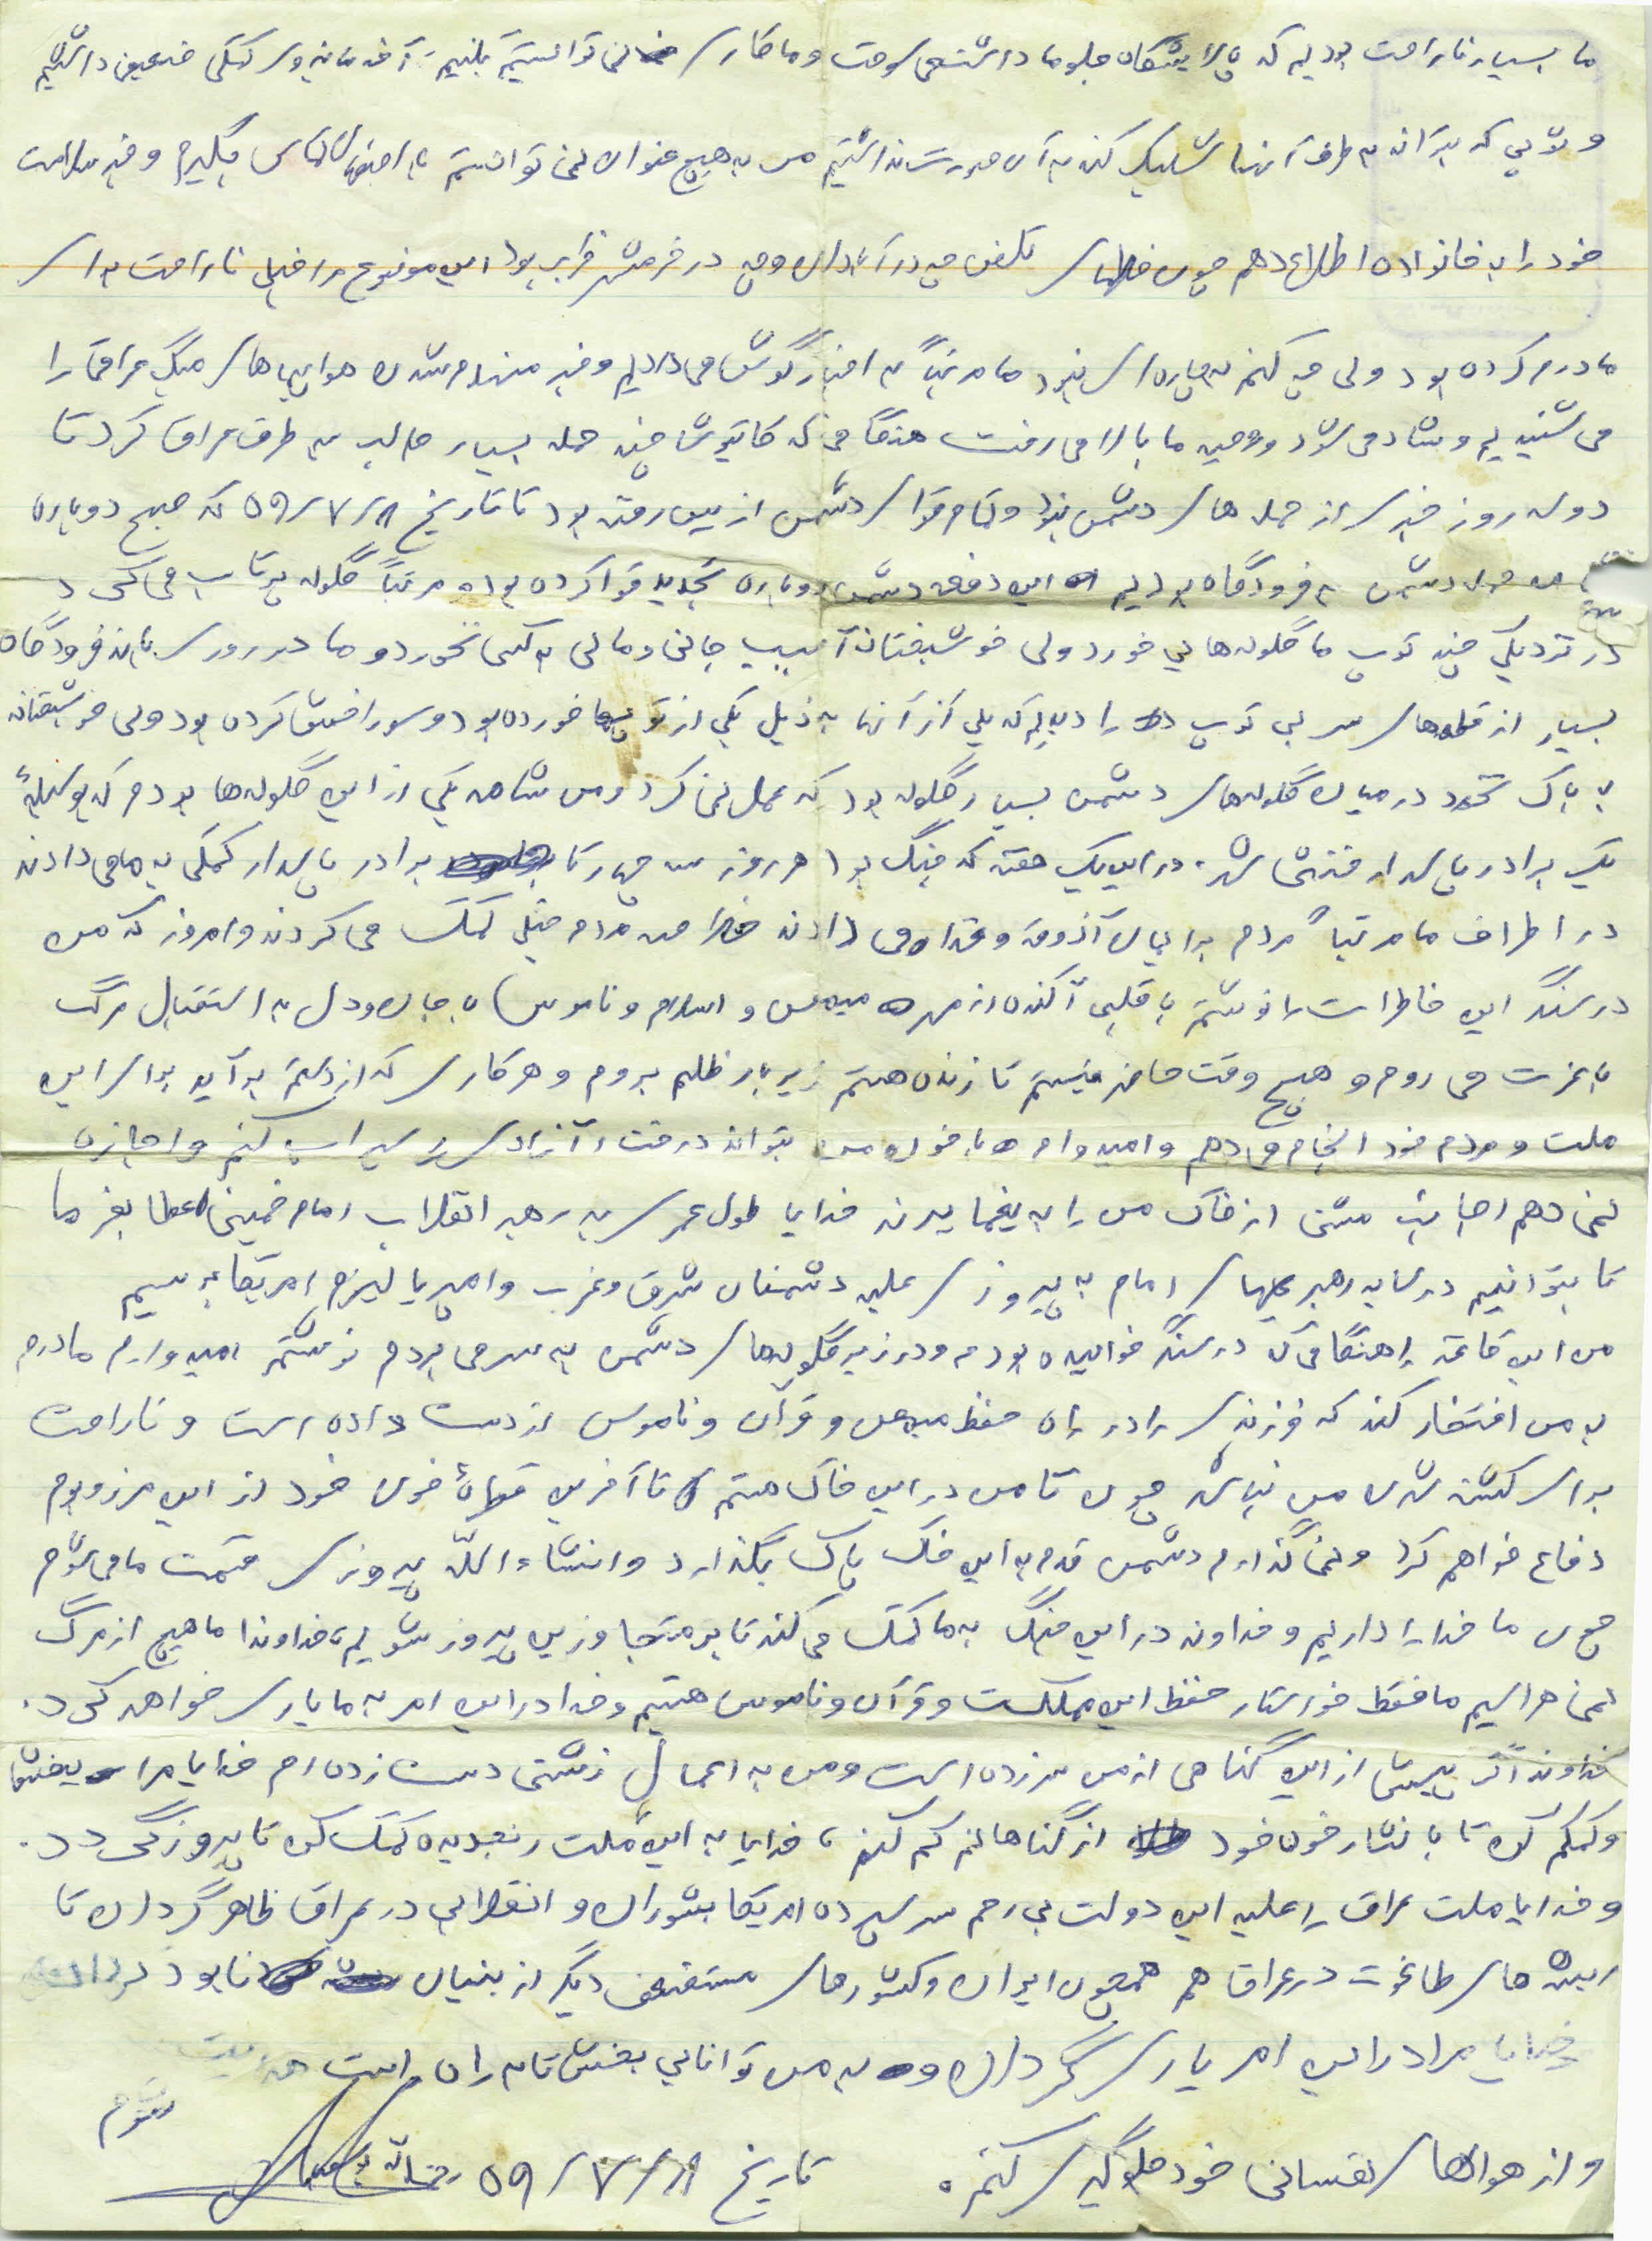 ما بسیار ناراحت بودیم که پالایشگاه جلو ما داشت می سوخت و ما کاری نمی توانستیم بکنیم آخه ما نیروی کمکی ضعیف داشتیم
و توپی که بتواند به طرف آنها شلیک کند به آن صورت نداشتیم من به هیچ عنوان نمی توانستم با تماس بگیرم و خبر سلامت
خود را به خانواده اطلاع دهم چون خطهای تلفن چه در آبادان و چه در خرمشهر خراب بود این موضوع مرا خیلی ناراحت برای
مادرم کرده بود ولی چه کنم چاره ای نبود ما مرتباً به اخبار گوش می دادیم و خبر منهدم شدن هواپیماهای میگ عراقی را
می شنیدیم و شاد می شد و روحیه ما بالا می رفت هنگامی که کاتیوشا چند حمله بسیار جالب به طرف عراق کرد تا
دو سه روز خبری از حمله های دشمن نبود و تمام قوای دشمن از بین رفته بود تا تاریخ ۵۹/۷/۸ که صبح دوباره
حمله دشمن به فرودگاه بودیم این دفعه دشمن دوباره تجدید قوا کرده بود و مرتباً گلوله پرتاب می کرد
در نزدیکی چند توپ ما گلوله هایی خورد ولی خوشبختانه آسیب جانی و مالی به کسی نخورد و ما در روی باند فرودگاه
بسیار از قطعه های سربی توپ را دیدیم که یکی از آنها به ذیل یکی از توپها خورده بود و سوراخش کرده بود ولی خوشبختانه
به باک نخورد در میان گلوله های دشمن بسیار گلوله بود که عمل نمی کرد و من شاهد یکی از این گلوله ها بودم که بوسیلهٔ
یک برادر پاسدار خنثی شد. در این یک هفته که جنگ بود هر روز سه چهار تا برادر پاسدار کمکی به ما می دادند
در اطراف ما مرتباً مردم برایمان آذوقه و غذا می دادند مردم خیلی کمک می کردند و امروز که من
در سنگر این خاطرات را نوشتم با قلبی آکنده از مهر میهن و اسلام و ناموس با جان و دل به استقبال مرگ
با عزت می روم و هیچ وقت حاضر نیستم تا زنده هستم زیر بار ظلم بروم و هر کاری که از دستم برآید برای این
ملت و مردم خود انجام می دهم و امیدوارم با خون من بتواند درخت آزادی را سیراب کنم و اجازه
نمی دهم اجانب مشتی از خاک من را به یغما ببرند خدایا طول عمری به رهبر انقلاب امام خمینی عطا بفرما
تا بتوانیم در سایه رهبریهای امام به پیروزی علیه دشمنان شرق و غرب و امپریالیزم امریکا برسیم
من این نامه را هنگامی که در سنگر خوابیده بودم و در زیر گلوله های دشمن به سر می بردم نوشتم امیدوارم مادرم
به من افتخار کند که فرزندی را در راه حفظ میهن و قرآن و ناموس از دست داده است و ناراحت
برای کشته شدن من نباشد چون تا من در این خاک هستم تا آخرین قطرهٔ خون خود از این مرز و بوم
دفاع خواهم کرد و نمی گذارم دشمن قدم به این خاک پاک بگذارد و انشاءالله پیروزی قسمت ما می شود
چون ما خدا را داریم و خداوند در این جنگ به ما کمک می کند تا بر متجاوزین پیروز شویم، خداوندا ما هیچ از مرگ
نمی هراسیم ما فقط خواستار حفظ این مملکت و قرآن و ناموس هستیم و خدا در این امر به ما یاری خواهد کرد.
خداوندا اگر پیش از این گناهی از من سر زده است و من به اعمال زشتی دست زده ام خدایا مرا ببخش
و کمکم کن تا با نثار خون خود از گناهانم کم کنم، خدایا به این ملت رنجدیده کمک کن تا پیروز گردد.
و خدایا ملت عراق را علیه این دولت بی رحم سرسپرده امریکا بشوران و انقلابی در عراق ظاهر گردان تا
ریشه های طاغوت در عراق هم همچون ایران و کشورهای مستضعف دیگر از بنیان نابود گردان
خدایا مرا در این امر یاری گردان و به من توانایی بخش تا به راه راست هدایت
شوم
و از هواهای نفسانی خود جلوگیری کنم.
تاریخ ۵۹/۷/۸